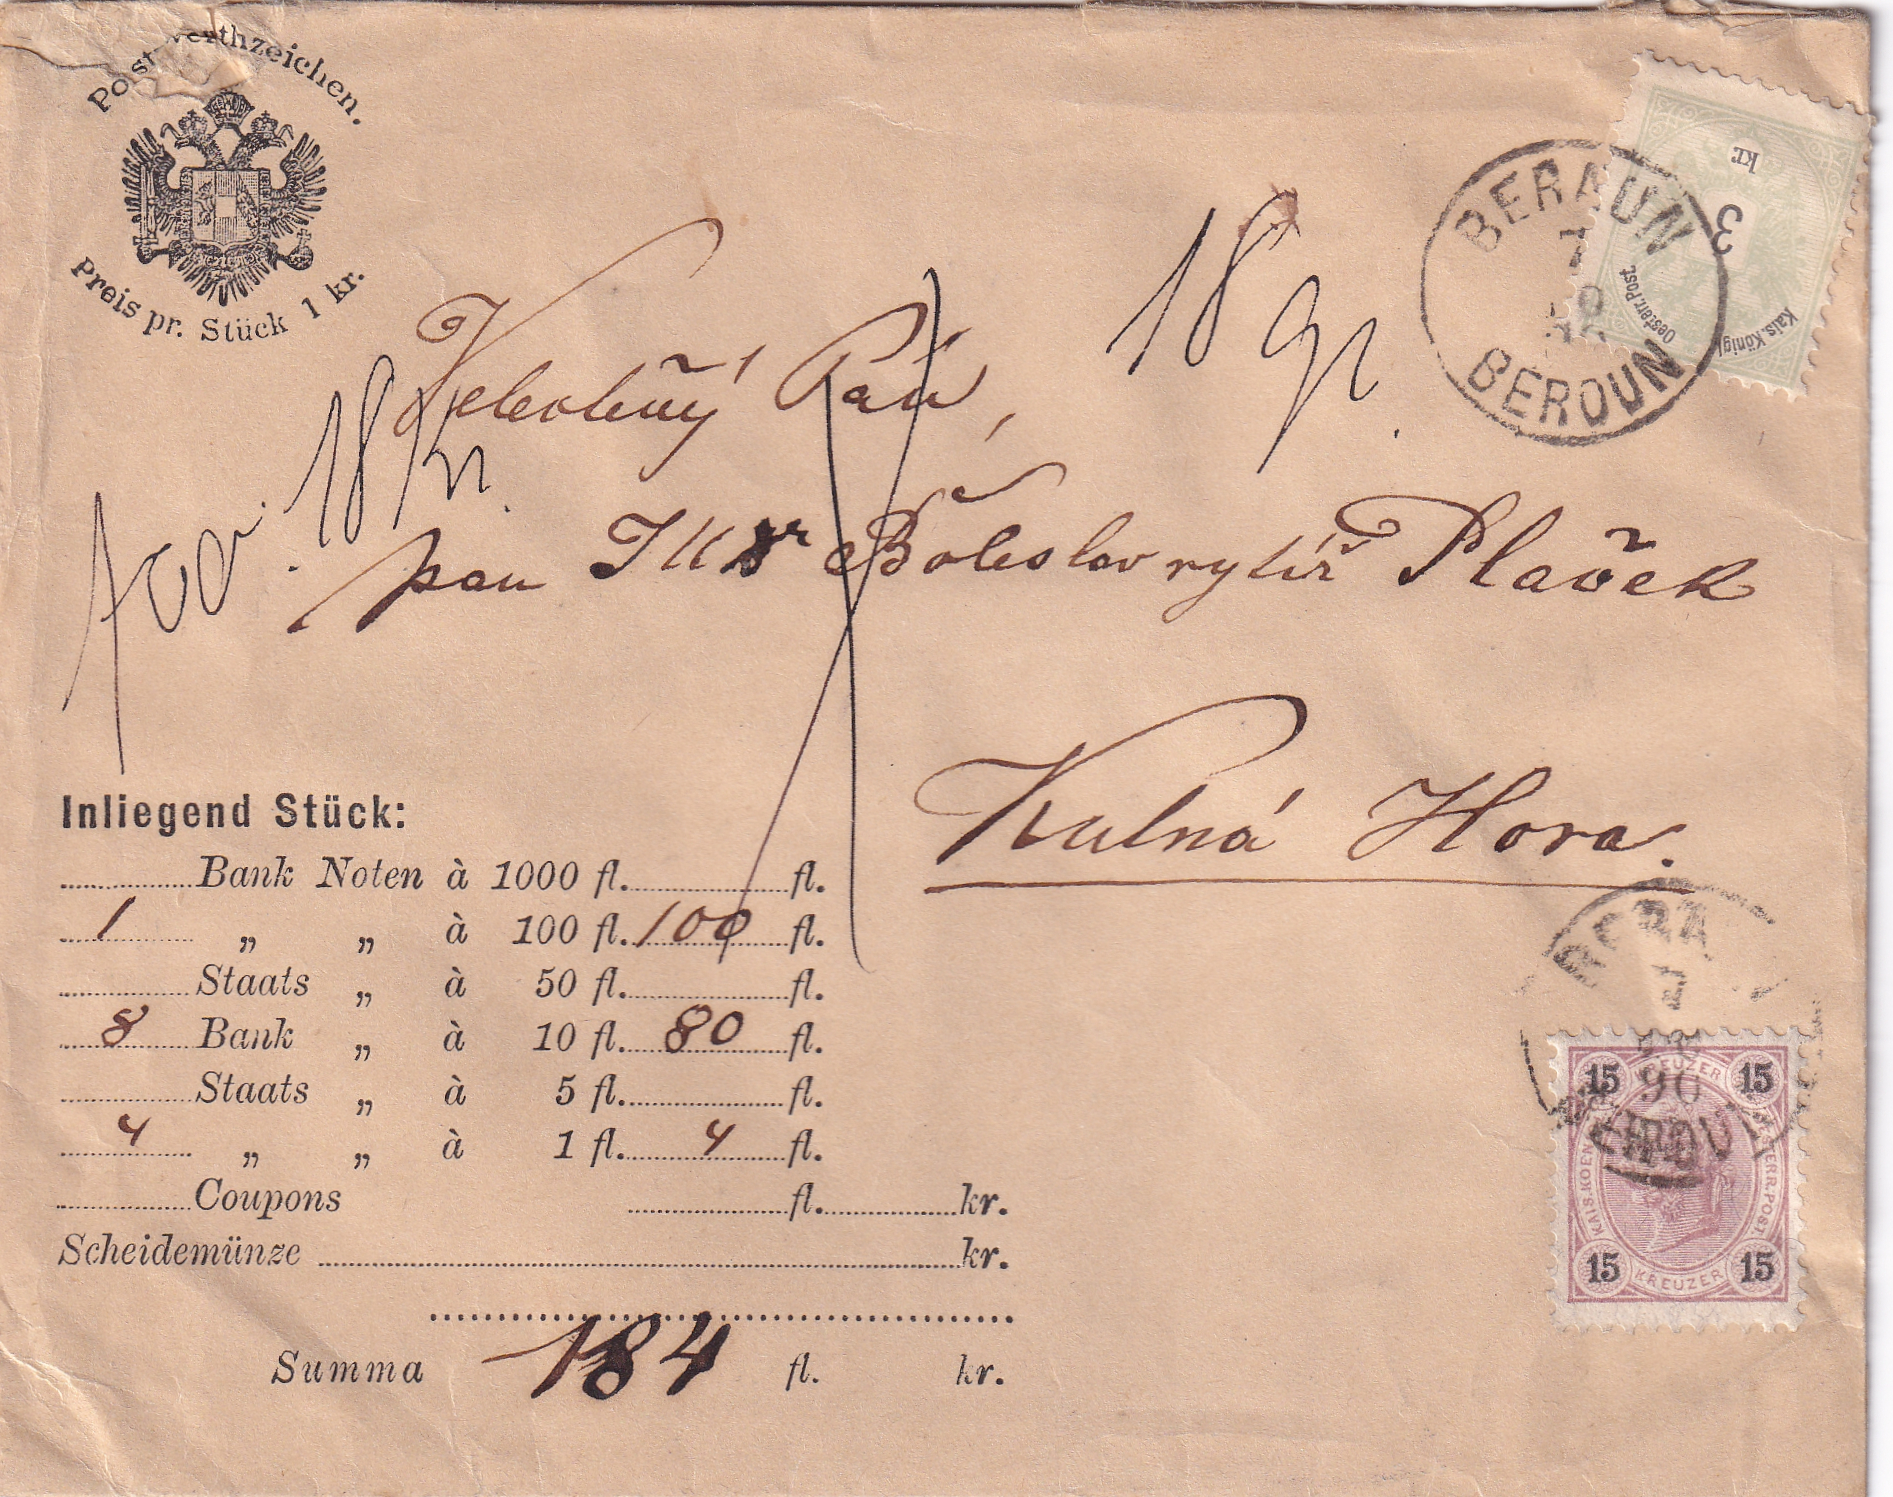 Postwerthzeichen.
Preis pr. Stück 1 kr.
18 gr.
BERAUN
BEROUN
3 kr.
Kais. Königl.
Oesterr. Post.
Velectěný Pan,
18 kr.
pan JUDr Boleslav rytíř Plaček
Kutná Hora.
Inliegend Stück:
Bank Noten à 1000 fl. fl.
1 „ „ à 100 fl. 100 fl.
Staats „ à 50 fl. fl.
8 Bank „ à 10 fl. 80 fl.
Staats „ à 5 fl. fl.
4 „ „ à 1 fl. 4 fl.
Coupons fl. kr.
Scheidemünze kr.
Summa 184 fl. kr.
90
15 KREUZER 15
KAIS. KOEN.
OESTERR. POST.
15 KREUZER 15